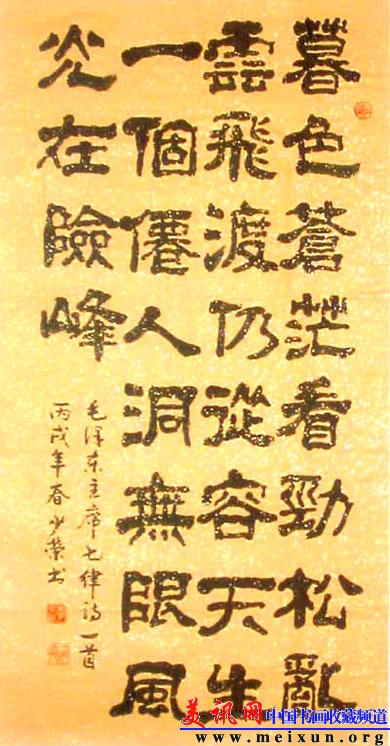 暮色蒼茫看勁松亂
雲飛渡仍從容天生
一個僊人洞無限風
光在險峰
毛泽东主席七律诗一首
丙戌年春少榮书
美讯网 中国书画收藏频道
www.meixun.org